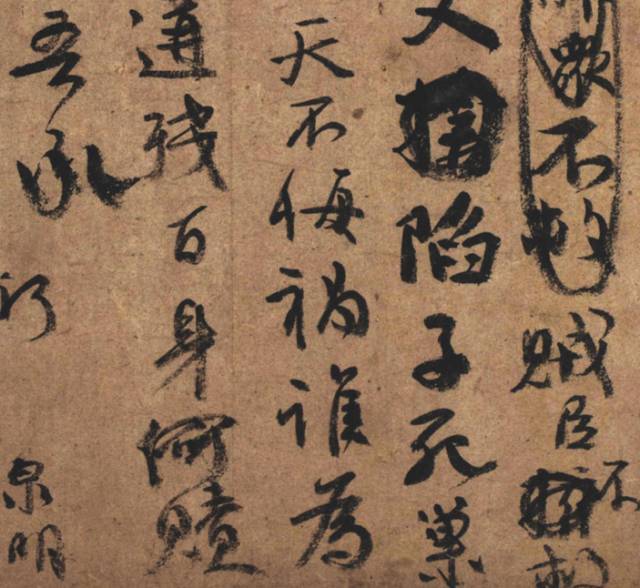 不賊臣不
父陷子死巢
天不悔禍誰為
遘殘百身何贖
吾承
泉明